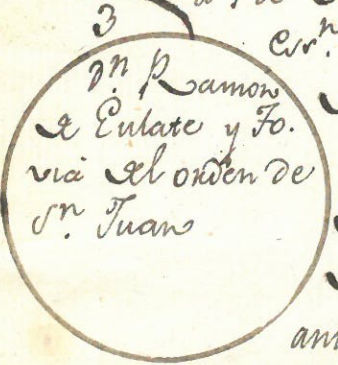 3
Dn. Ramon
de Eulate y Jo.
via del orden de
Sn. Juan